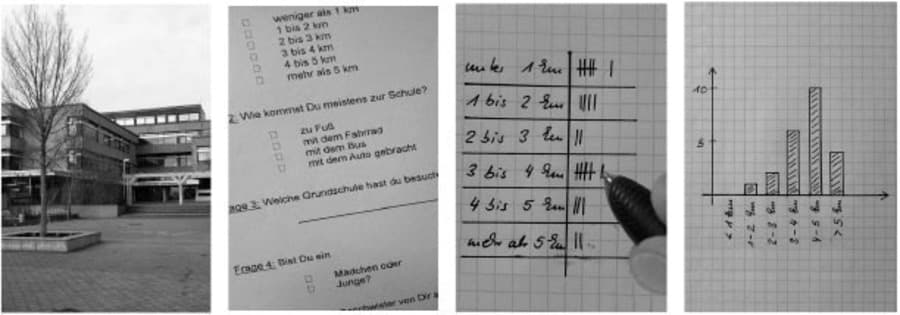 weniger als 1 km
1 bis 2 km
2 bis 3 km
3 bis 4 km
4 bis 5 km
mehr als 5 km
2: Wie kommst Du meistens zur Schule?
zu Fuß
mit dem Fahrrad
mit dem Bus
mit dem Auto gebracht
age 3: Welche Grundschule hast du besucht
Frage 4: Bist Du ein
Mädchen oder
Junge?
von Dir a
unter 1 km
1 bis 2 km
2 bis 3 km
3 bis 4 km
4 bis 5 km
mehr als 5 km
10
5
< 1 km
1-2 km
2-3 km
3-4 km
4-5 km
> 5 km